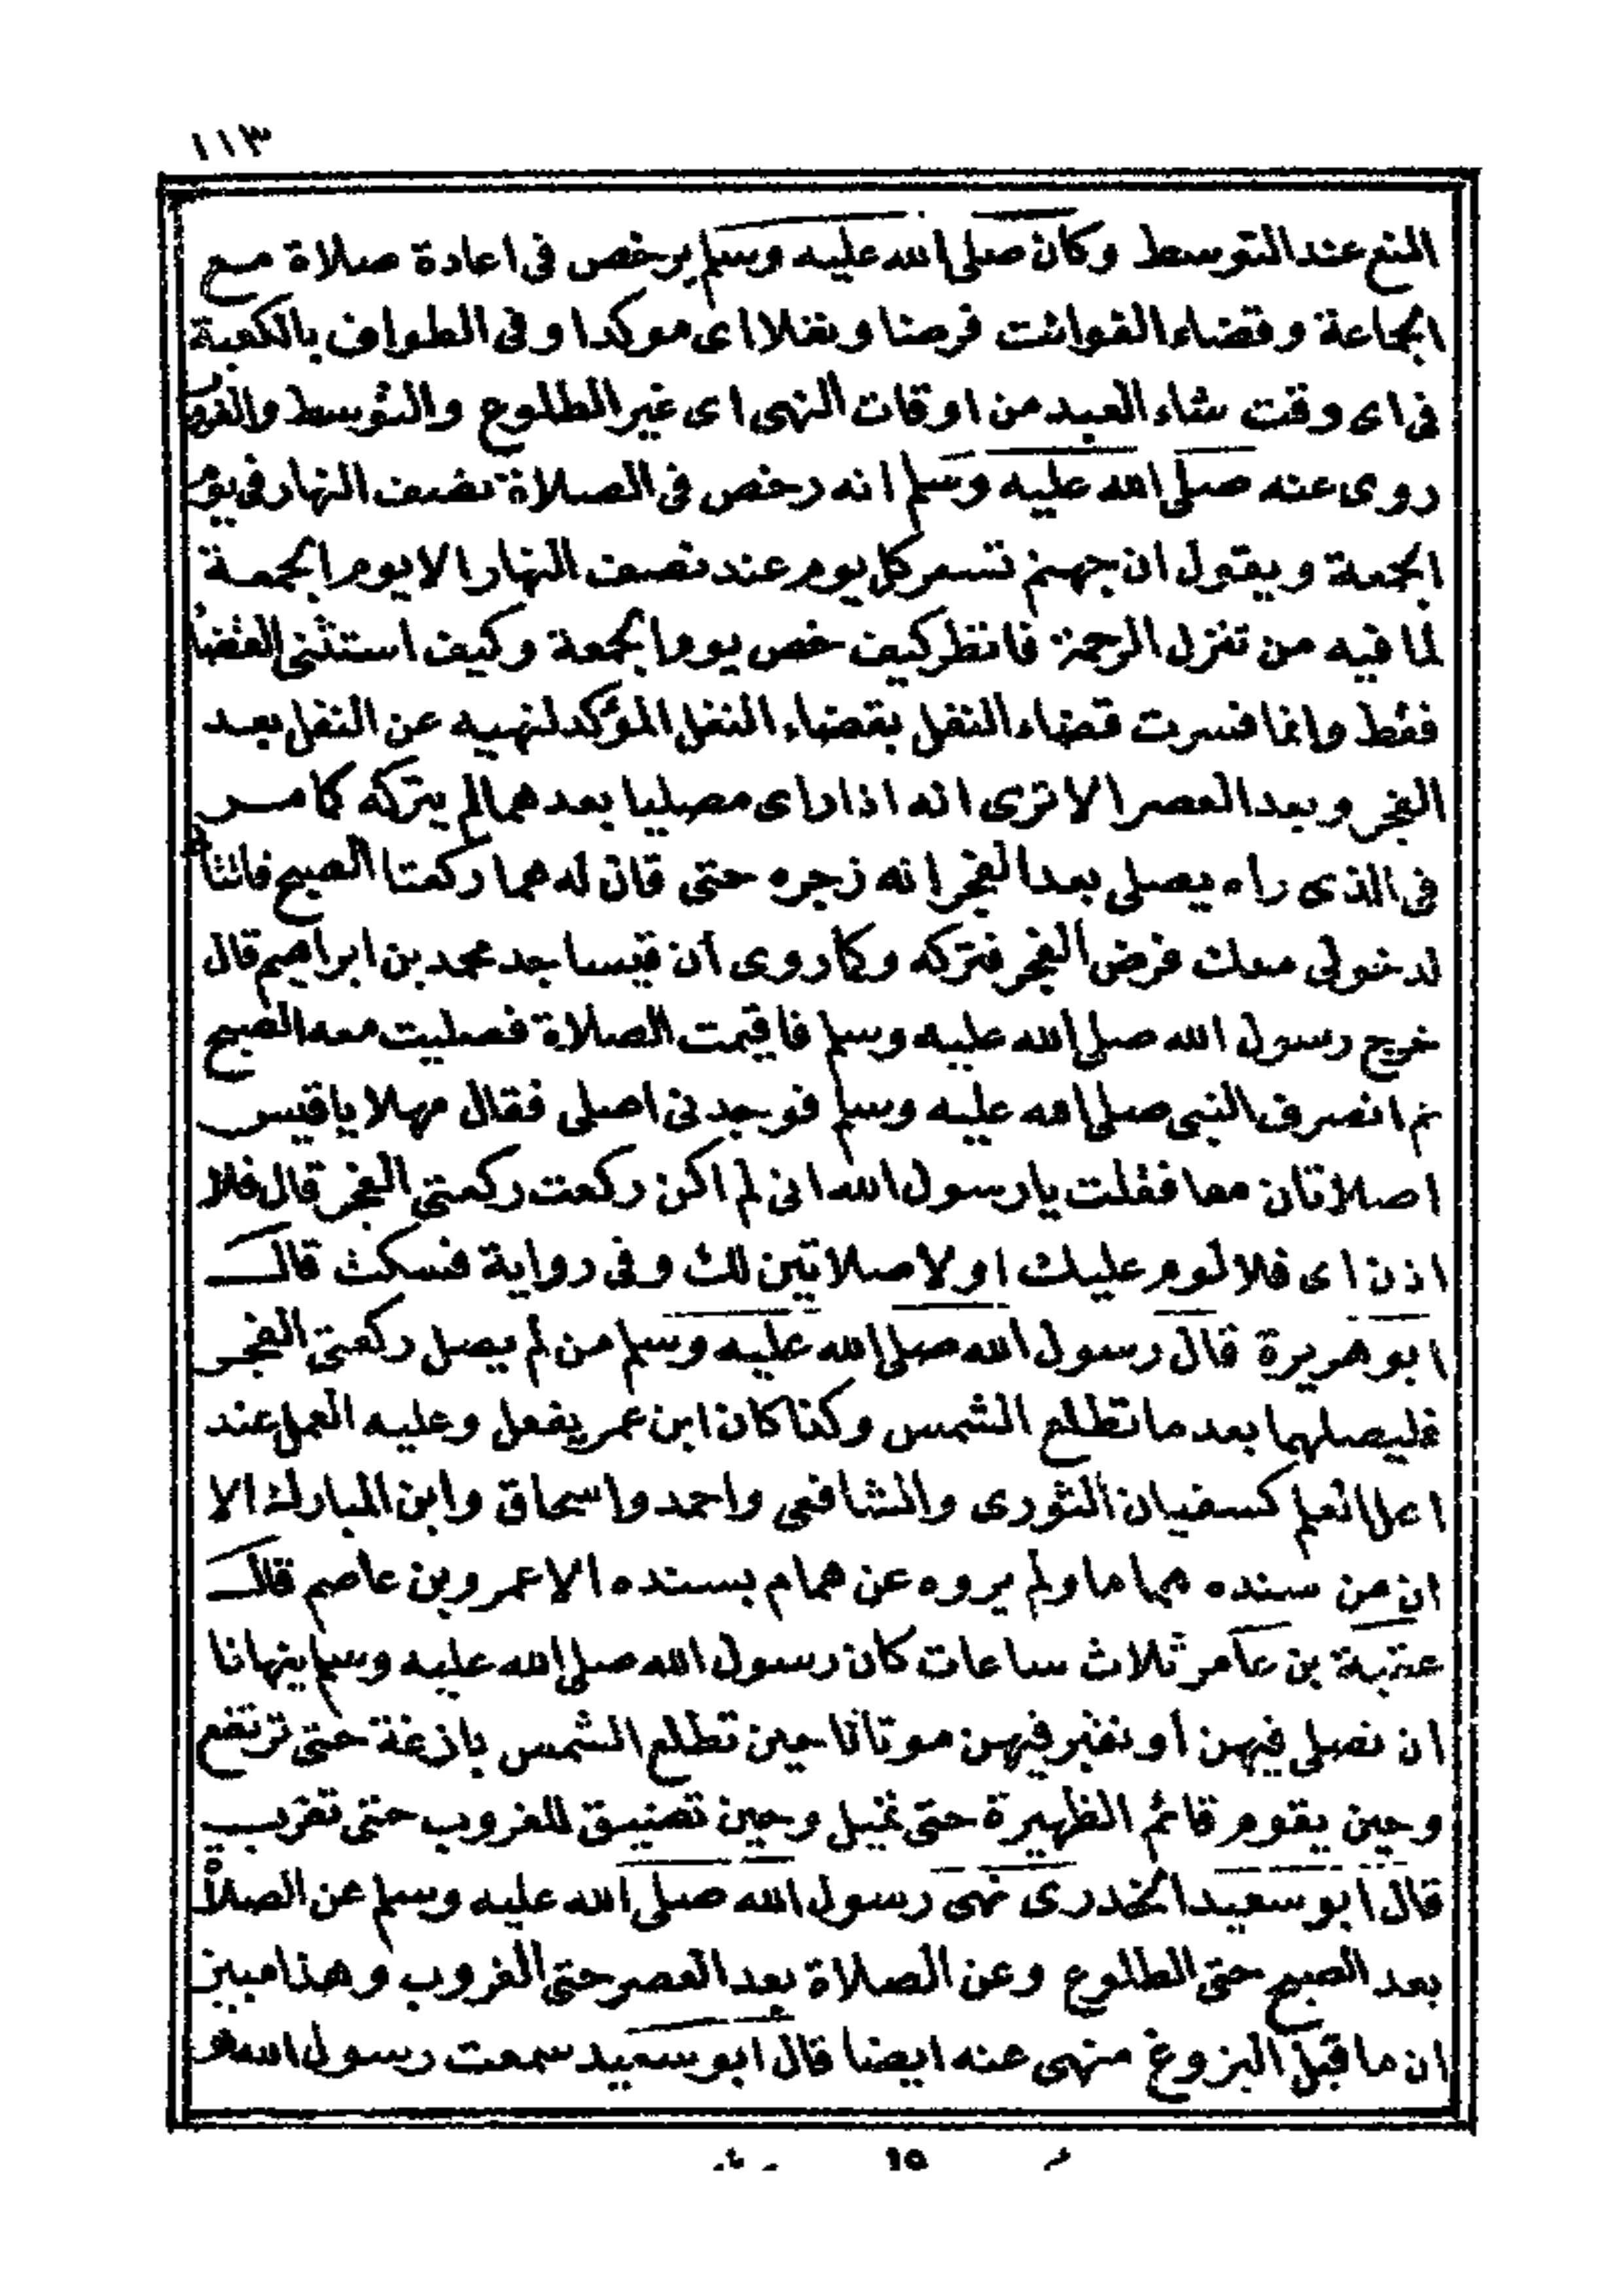 ١١٣
المنع عند التوسط وكان صلى الله عليه وسلم يرخص فى اعادة صلاة مع
الجماعة وقضاء الفوائت فرضا ونفلا اى موكدا وفى الطواف بالكعبة
فى اى وقت شاء العبد من اوقات النهى اى غير الطلوع والتوسط والغروب
روى عنه صلى الله عليه وسلم انه رخص فى الصلاة نصف النهار فى يوم
الجمعة ويقول ان جهنم تسعر كل يوم عند نصف النهار الا يوم الجمعة
لما فيه من تنزل الرحمة فانظر كيف خص يوم الجمعة وكيف استثنى القضاء
فقط وانما فسرت قضاء النفل بقضاء النفل المؤكد لنهيه عن النفل بعد
الفجر وبعد العصر الا ترى انه اذا راى مصليا بعدهما لم يتركه كما مر
فى الذى راه يصلى بعد الفجر انه زجره حتى قال له هما ركعتا الصبح فاتتا
لدخولى معك فرض الفجر فتركه وكما روى ان قيسا جد محمد بن ابراهيم قال
خرج رسول الله صلى الله عليه وسلم فاقيمت الصلاة فصليت معه الصبح
ثم انصرف النبى صلى الله عليه وسلم فوجدنى اصلى فقال مهلا يا قيس
اصلاتان معا فقلت يا رسول الله انى لم اكن ركعت ركعتى الفجر قال فلا
اذن اى فلا لوم عليك او لا صلاتين لك وفى رواية فسكت قال
ابو هريرة قال رسول الله صلى الله عليه وسلم من لم يصل ركعتى الفجر
فليصلهما بعد ما تطلع الشمس وكذا كان ابن عمر يفعل وعليه العمل عند
اهل العلم كسفيان الثورى والشافعى واحمد واسحاق وابن المبارك الا
ان من سنده هماما ولم يروه عن همام بسنده الا عمرو بن عاصم قال
عقبة بن عامر ثلاث ساعات كان رسول الله صلى الله عليه وسلم ينهانا
ان نصلى فيهن أو نقبر فيهن موتانا حين تطلع الشمس بازغة حتى ترتفع
وحين يقوم قائم الظهيرة حتى تميل وحين تضيق للغروب حتى تغرب
قال ابو سعيد الخدرى نهى رسول الله صلى الله عليه وسلم عن الصلاة
بعد الصبح حتى الطلوع وعن الصلاة بعد العصر حتى الغروب وهذا مبين
ان ما قبل البزوغ منهى عنه ايضا قال ابو سعيد سمعت رسول الله
١٥